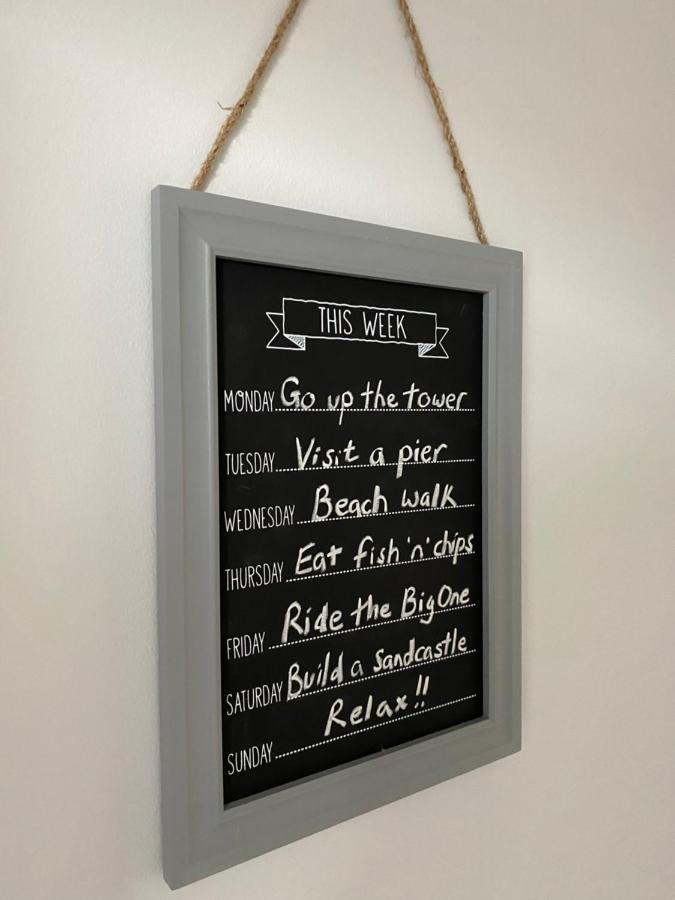 THIS WEEK
MONDAY Go up the tower
TUESDAY Visit a pier
WEDNESDAY Beach walk
THURSDAY Eat fish 'n' chips
FRIDAY Ride the Big One
SATURDAY Build a sandcastle
SUNDAY Relax!!